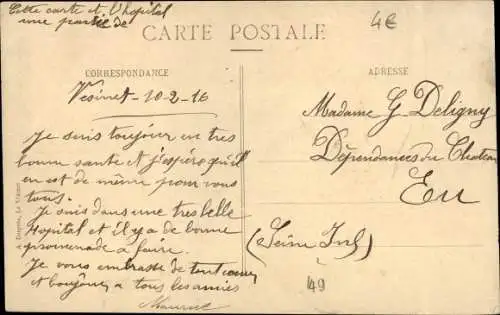 Cette carte et l'hopital
une partie de
4€
CARTE POSTALE
CORRESPONDANCE
ADRESSE
Vesinet - 10-2-16
Je suis toujour en tres
bonne sante et j'espère qu'il
en est de même pour vous
tous.
Je suis dans une tres belle
Hopital et il y a de bonne
promenade a faire.
Je vous embrasse de tout coeur
et bonjour a tous les amies
Maurice
Madame G Deligny
Dépendances du Chateau
Eu
(Seine Inf)
149